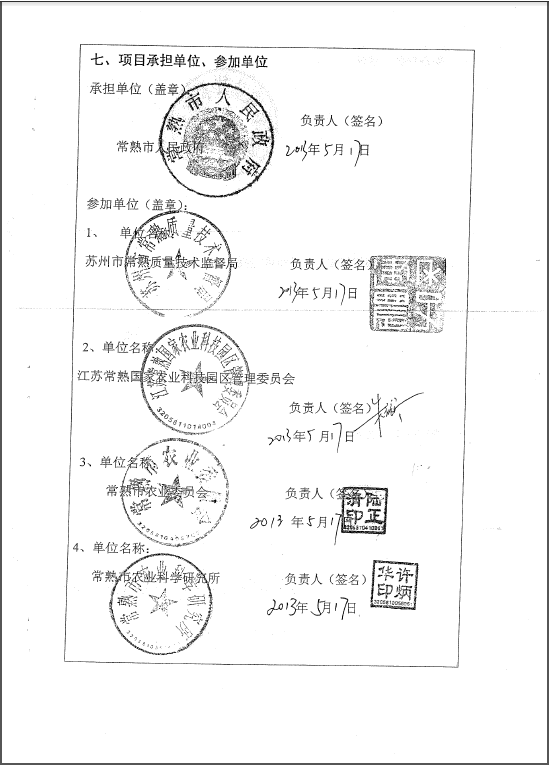 七、项目承担单位、参加单位
承担单位（盖章）
常熟市人民政府
负责人（签名）
常熟市人民政府
2013年5月17日
参加单位（盖章）：
1、 单位名称
苏州市常熟质量技术监督局
负责人（签名）
2013年5月17日
2、单位名称
江苏常熟国家农业科技园区管理委员会
3205811014003
负责人（签名）
2013年5月17日
3、单位名称
常熟市农业委员会
负责人（签名）
2013年5月17日
陆正清印
4、单位名称：
常熟市农业科学研究所
负责人（签名）
2013年5月17日
许炳华印